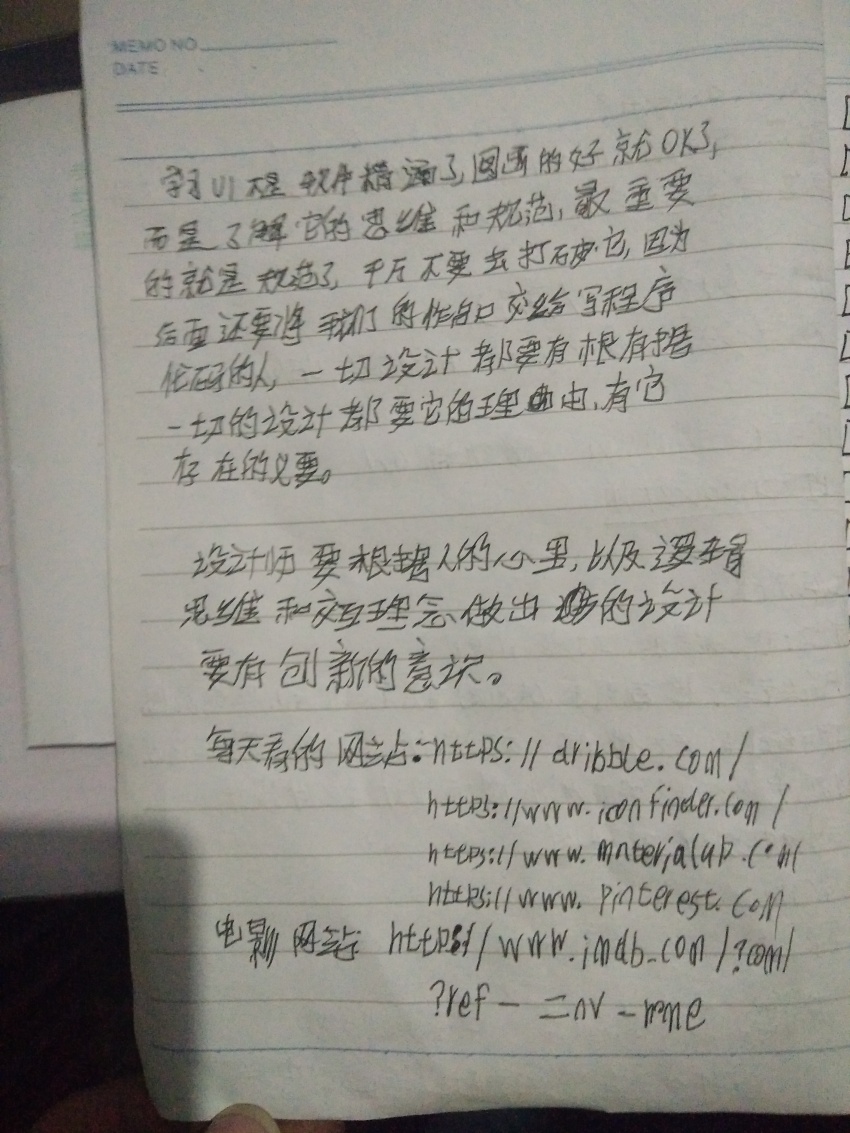 MEMO NO
DATE
学习UI不是软件精通了,图画的好就OK了,
而是了解它的思维和规范,最重要
的就是规范了,千万不要去打破它,因为
后面还要将我们的作品交给写程序
代码的人,一切设计都要有根有据
一切的设计都要它的理由,有它
存在的必要。
设计师要根据人的心里,以及逻辑
思维和交互理念做出的设计
要有创新的意识。
每天看的网站:https://dribbble.com/
https://www.iconfinder.com/
https://www.materialup.com/
https://www.pinterest.com
电影网站 https://www.imdb.com/?com/
?ref-二nv-mme